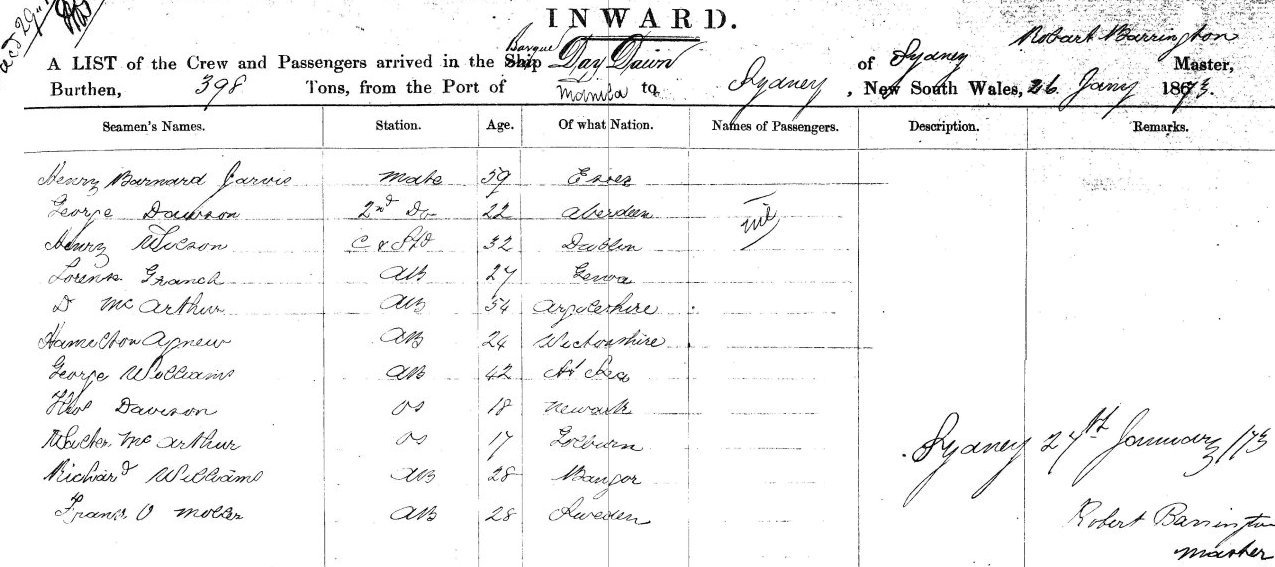 INWARD.
A LIST of the Crew and Passengers arrived in the Ship Barque Day Dawn of Sydney Robert Barrington Master,
Burthen, 398 Tons, from the Port of Manila to Sydney, New South Wales, 26 Jany 1873.
Seamen's Names. Station. Age. Of what Nation. Names of Passengers. Description. Remarks.
Henry Barnard Jarvis Mate 59 Essex
George Dawson 2nd Do 22 Aberdeen nil
Henry Wilson C & Std 32 Dublin
AB 27
D McArthur AB 54 Argyleshire
Hamilton Agnew AB 24 Wictonshire
George Williams AB 42 At Sea
Thos Davison OS 18 Newark
Walter McArthur OS 17 Golburn
Sydney 27th January /73
Richard Williams AB 28 Bangor
Franz O Moller AB 28 Sweden
Robert Barrington
Master